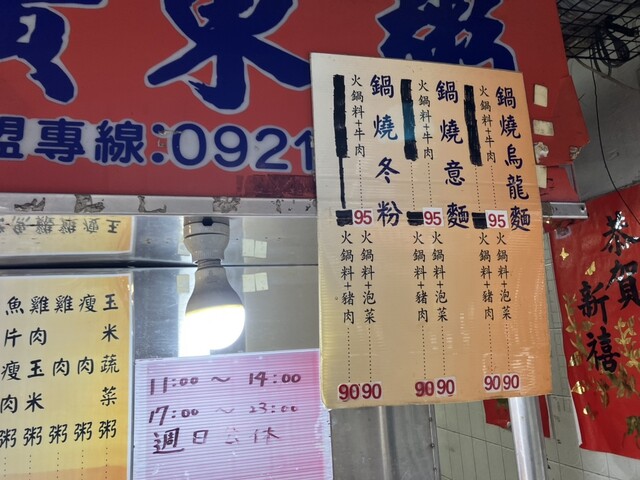 東粥
盟專線:0921
鍋燒烏龍麵
火鍋料+牛肉 95
火鍋料+泡菜 90
火鍋料+豬肉 90
鍋燒意麵
火鍋料+牛肉 95
火鍋料+泡菜 90
火鍋料+豬肉 90
鍋燒冬粉
火鍋料+牛肉 95
火鍋料+泡菜 90
火鍋料+豬肉 90
玉米蔬菜粥
瘦肉粥
雞肉玉米粥
雞肉粥
魚片瘦肉粥
11:00～14:00
17:00～23:00
週日公休
恭賀新禧